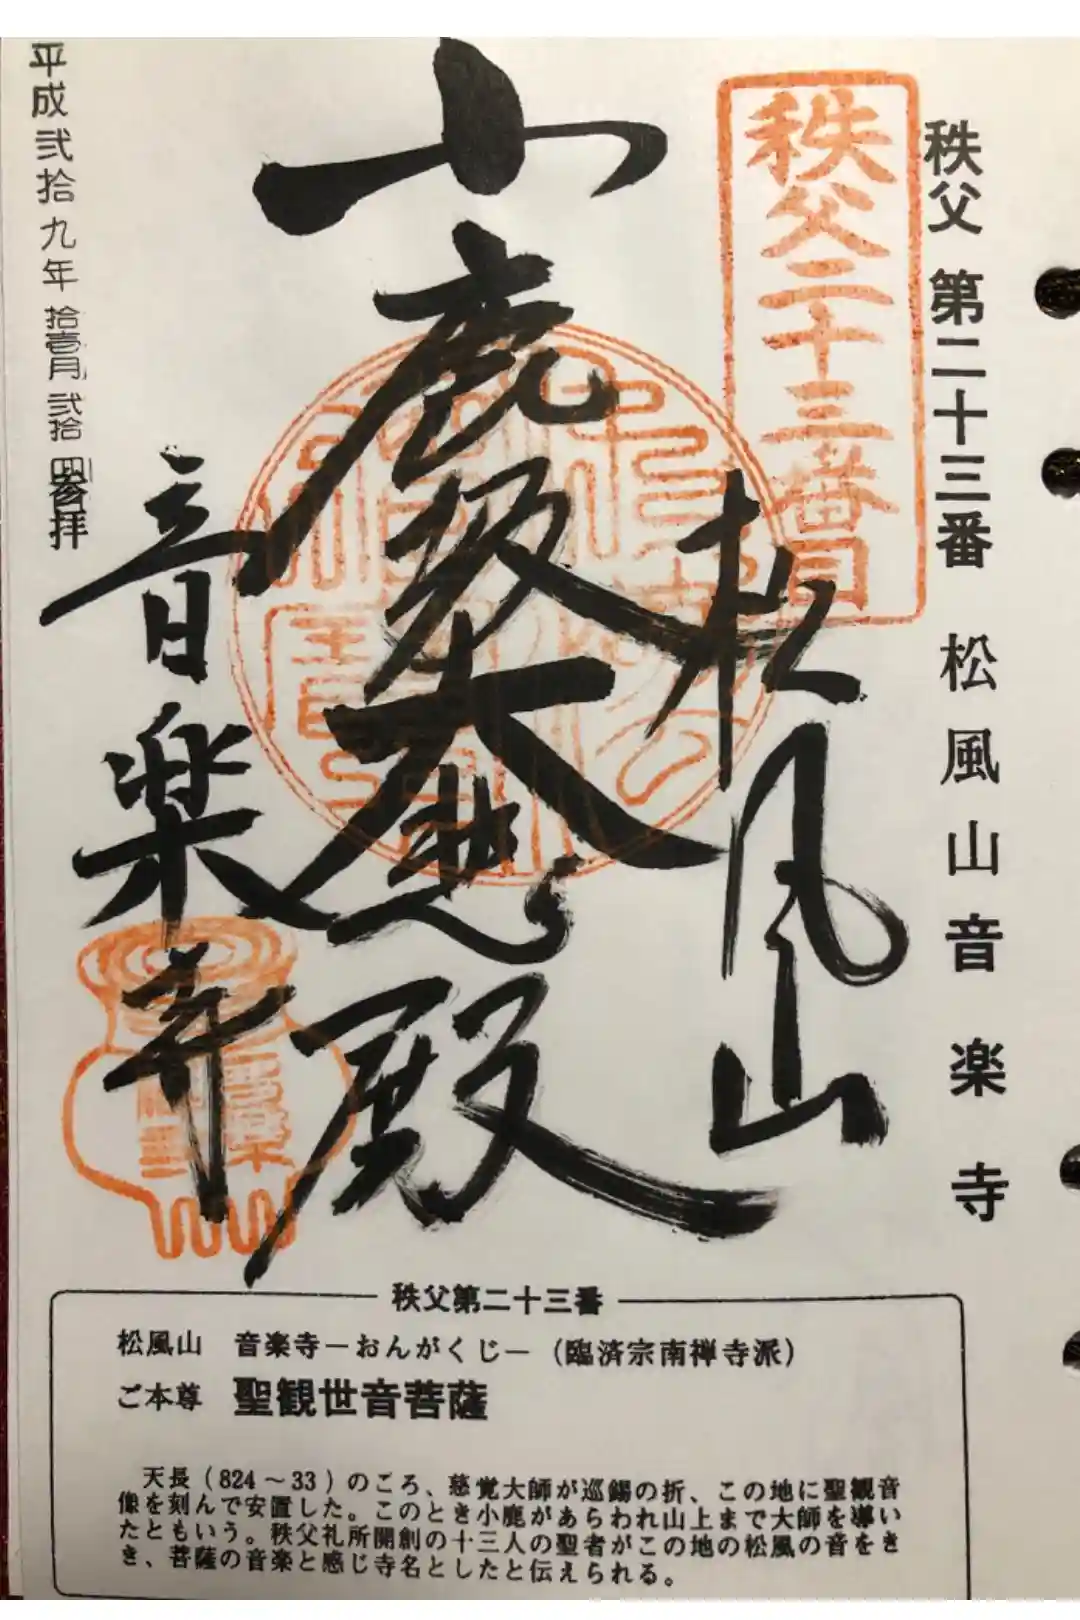 秩父 第二十三番 松風山音楽寺
秩父二十三番
松風山
小鹿坂大慈殿
音楽寺
平成弐拾九年 拾壱月 弐拾四 参拝
秩父第二十三番
松風山 音楽寺－おんがくじ－（臨済宗南禅寺派）
ご本尊 聖観世音菩薩
天長（824～33）のころ、慈覚大師が巡錫の折、この地に聖観音
像を刻んで安置した。このとき小鹿があらわれ山上まで大師を導い
たともいう。秩父札所開創の十三人の聖者がこの地の松風の音をき
き、菩薩の音楽と感じ寺名としたと伝えられる。